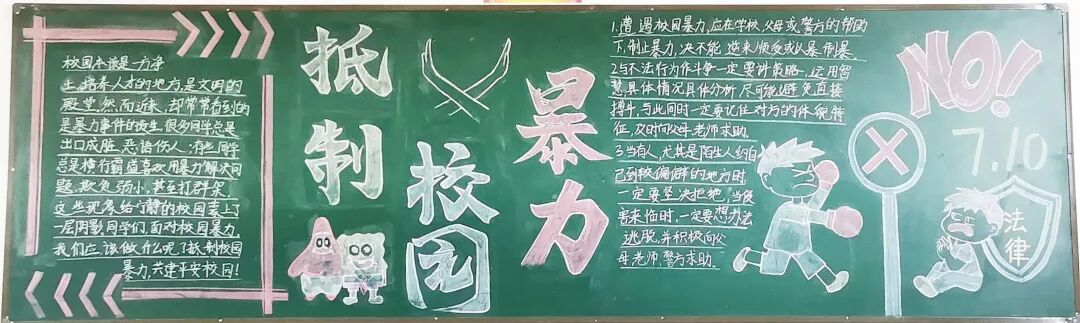 校园本该是一方净
土,培养人才的地方,是文明的
殿堂。然而近来,却常常看到的
是暴力事件的发生,很多同学总是
出口成脏,恶语伤人;有些同学
总是横行霸道喜欢用暴力解决问
题,欺负弱小,甚至打群架。
这些现象给宁静的校园蒙上了
一层阴影同学们,面对校园暴力
我们应该做什么呢?抵制校园
暴力,共建平安校园!
抵制
校园
暴力
1.遭遇校园暴力,应在学校,父母或警方的帮助
下,制止暴力,决不能逆来顺受或以暴制暴。
2.与不法行为作斗争一定要讲策略,运用智
慧具体情况具体分析,尽可能避免直接
搏斗,与此同时一定要记住对方的体貌特
征,及时向父母老师求助。
3.当有人,尤其是陌生人约自
己到较偏僻的地方时,
一定要坚决拒绝,当侵
害来临时,一定要想办法
逃脱,并积极向父
母老师,警方求助。
NO!
7.10
法律